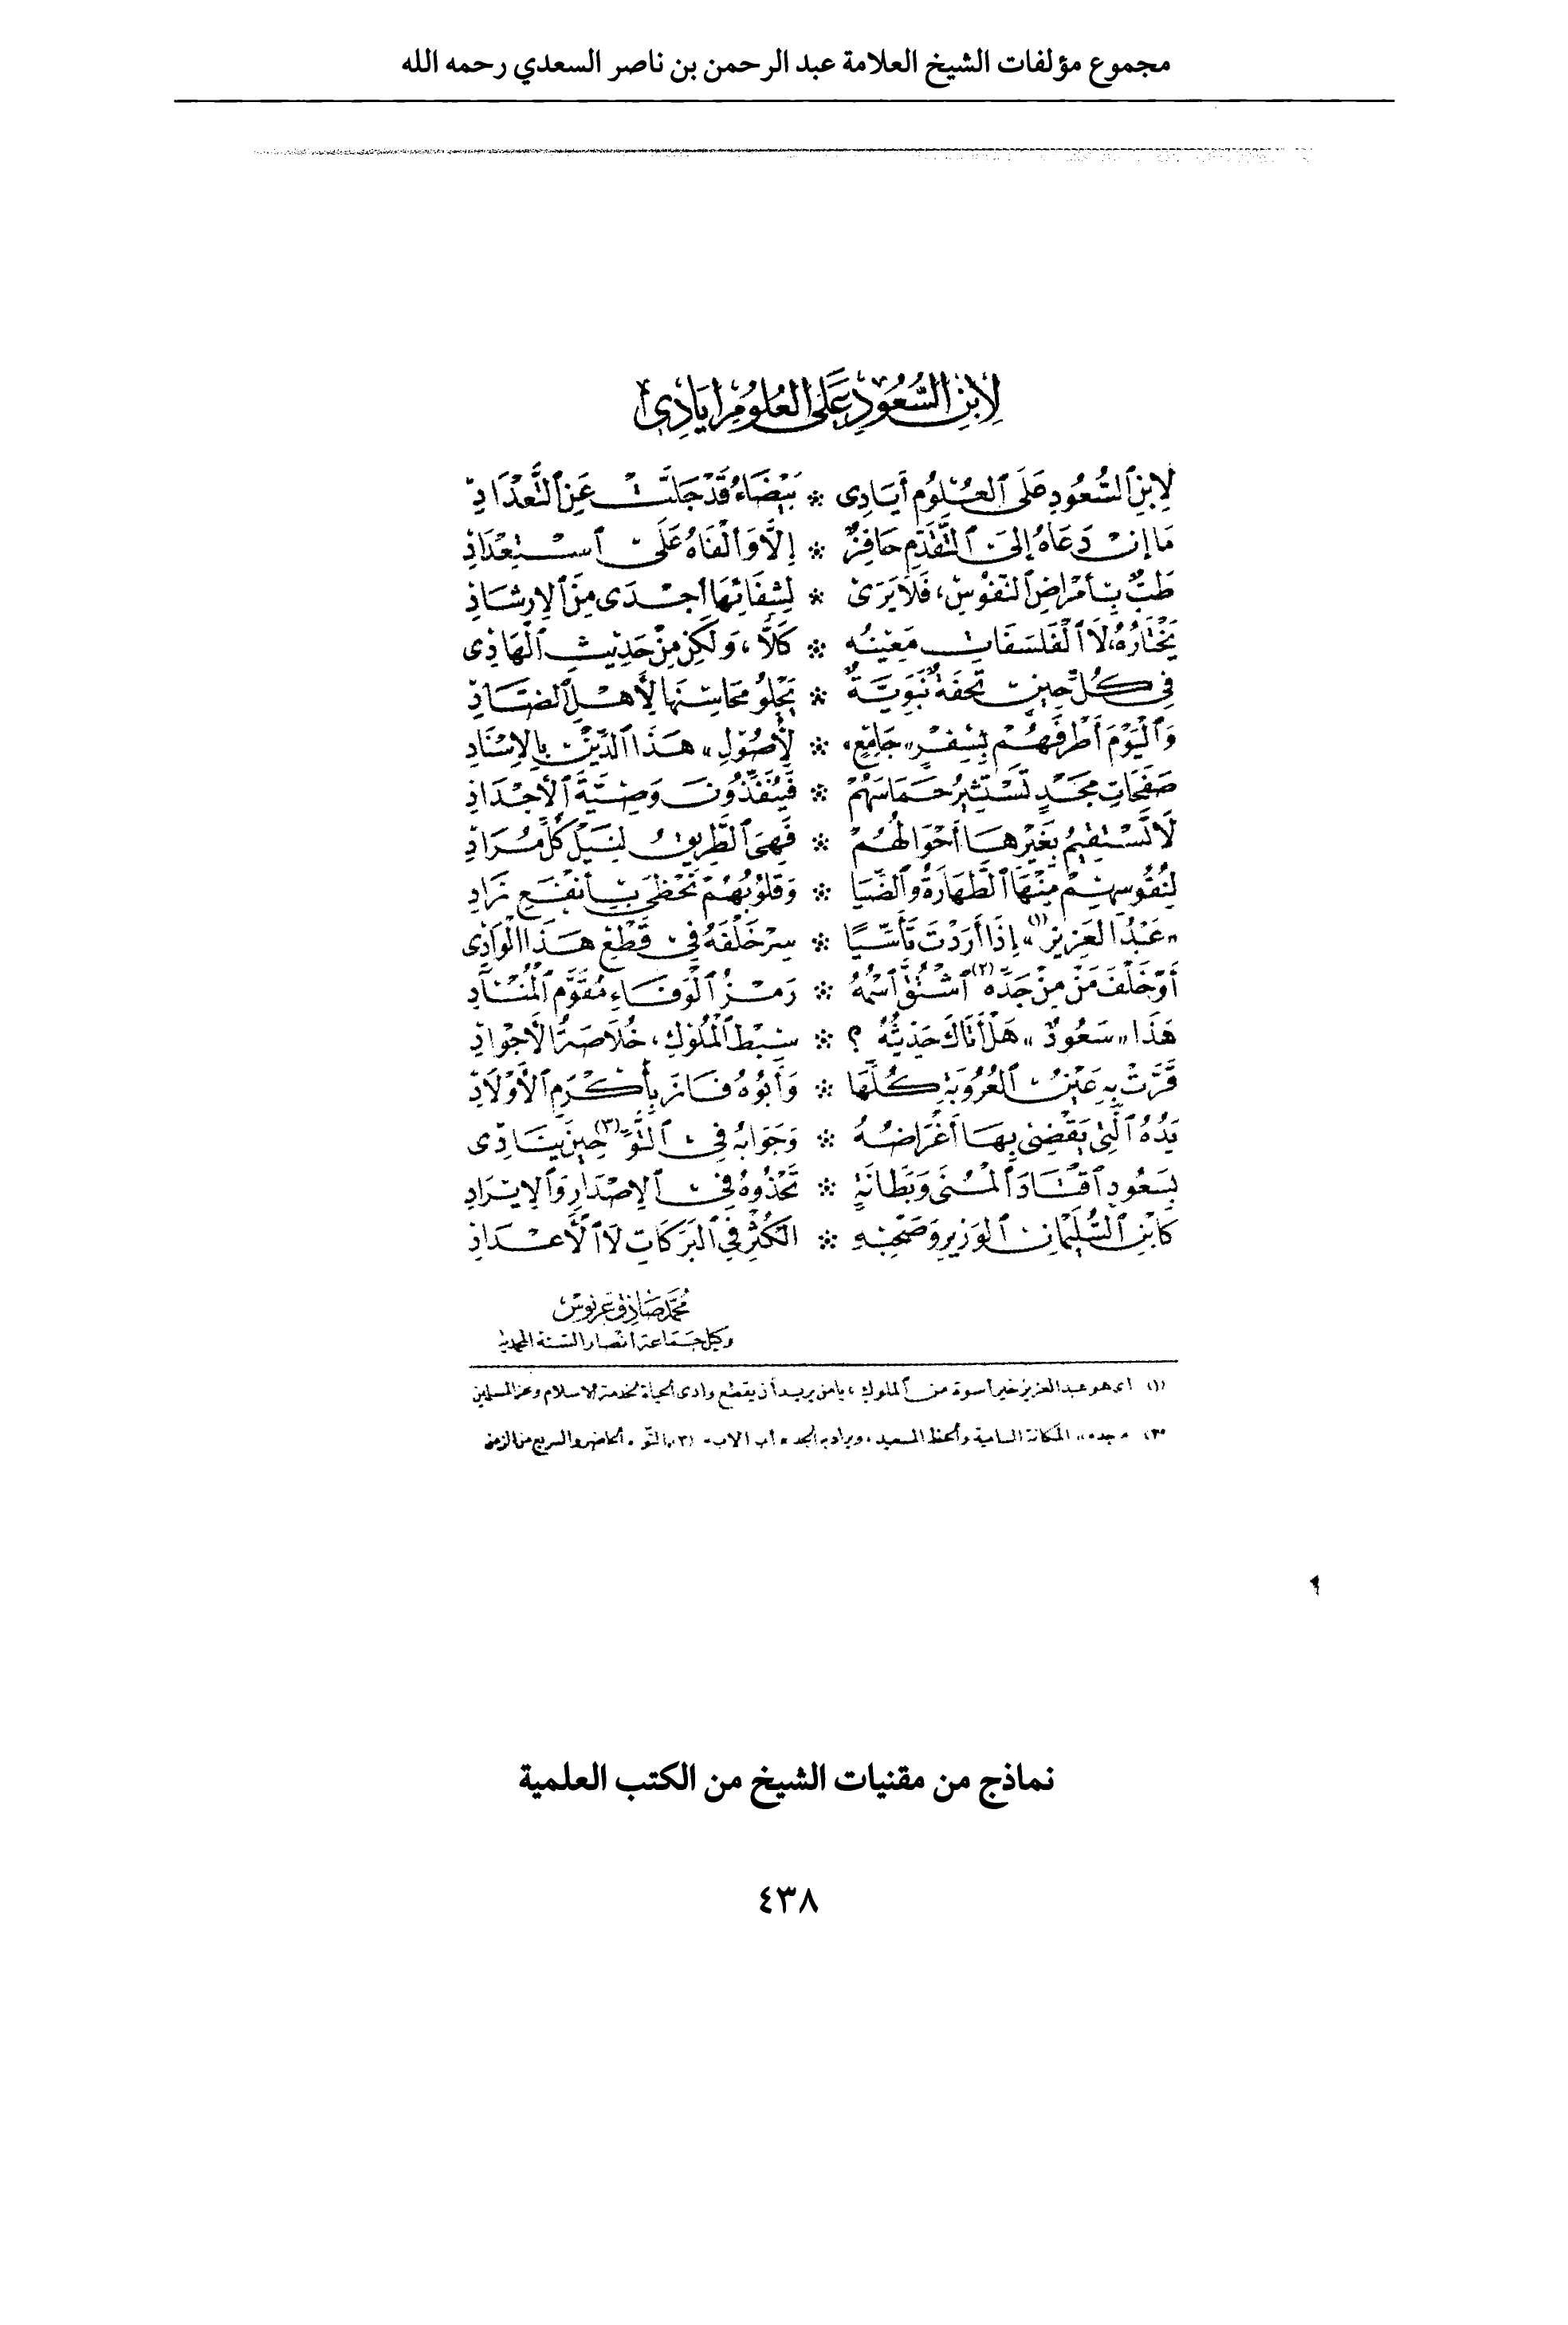 مجموع مؤلفات الشيخ العلامة عبد الرحمن بن ناصر السعدي رحمه الله
لِابْنِ السُّعُودِ عَلَى العُلُومِ أَيَادِي
لِابْنِ السُّعُودِ عَلَى العُلُومِ أَيَادِى * بَيْضَاءُ قَدْ جَلَّتْ عَنِ التَّعْدَادِ
مَا إِنْ دَعَاهُ إِلَى التَّقَدُّمِ حَافِزٌ * إِلَّا وَأَلْفَاهُ عَلَى اسْتِعْدَادِ
طَبٌّ بِأَمْرَاضِ النُّفُوسِ، فَلَا يَرَى * لِشِفَائِهَا أَجْدَى مِنَ الْإِرْشَادِ
يَخْتَارُهُ، لَا الْفَلْسَفَاتِ مَعِينُهُ * كَلَّا، وَلَكِنْ مِنْ حَدِيثِ الْهَادِى
فِي كُلِّ حِينٍ تُحْفَةٌ نَبَوِيَّةٌ * يَجْلُو مَحَاسِنَهَا لِأَهْلِ الضَّادِ
وَالْيَوْمَ أَطْرَفَهُمْ بِسِفْرٍ «جَامِعٍ * لِأُصُولِ» هَذَا الدِّينِ بِالْإِسْنَادِ
صَفَحَاتِ مَجْدٍ تَسْتَثِيرُ حَمَاسَهُمْ * فَيُنَفِّذُونَ وَصِيَّةَ الْأَجْدَادِ
لَا تَسْتَقِيمُ بِغَيْرِهَا أَحْوَالُهُمْ * فَهِيَ الطَّرِيقُ لِنَيْلِ كُلِّ مُرَادِ
لِنُفُوسِهِمْ مِنْهَا الطَّهَارَةُ وَالضِّيَا * وَقُلُوبُهُمْ تَحْظَى بِأَنْفَعِ زَادِ
«عَبْدُ الْعَزِيزِ (١)» إِذَا أَرَدْتَ تَأَسِّيًا * سِرْ خَلْفَهُ فِي قَطْعِ هَذَا الْوَادِى
أَوْ خَلْفَ مَنْ مِنْ جَدِّهِ (٢) اشْتُقَّ اسْمُهُ * رَمْزُ الْوَفَاءِ مُقَوِّمِ الْمُنْآدِ
هَذَا «سَعُودٌ» هَلْ أَتَاكَ حَدِيثُهُ ؟ * سِبْطُ الْمُلُوكِ، خُلَاصَةُ الْأَجْوَادِ
قَرَّتْ بِهِ عَيْنُ الْعُرُوبَةِ كُلِّهَا * وَأَبُوهُ فَازَ بِأَكْرَمِ الْأَوْلَادِ
يَدُهُ الَّتِي يَقْضِى بِهَا أَغْرَاضَهُ * وَجَوَابُهُ فِي التَّوِّ (٣) حِينَ يُنَادِى
بِسَعُودٍ اقْتَادَ الْمُنَى وَبِطَانَةٍ * تَحْذُوهُ فِي الْإِصْدَارِ وَالْإِيرَادِ
كَابْنِ السُّلَيْمَانِ الْوَزِيرِ وَصَحْبِهِ * الْكُثْرِ فِي الْبَرَكَاتِ لَا الْأَعْدَادِ
مُحَمَّد صَادِق عَرْنُوس
وكيل جماعة أنصار السنة المحمدية
(١) أى هو عبد العزيز خير أسوة من الملوك، يا من يريد أن يقطع وادى الحياة لخدمة الإسلام وعز المسلمين
(٢) «جده» المكانة السامية والحظ السعيد، ويراد به الجد «أب الأب» (٣) التو. الحاضر والسريع من الزمن
نماذج من مقنيات الشيخ من الكتب العلمية
٤٣٨